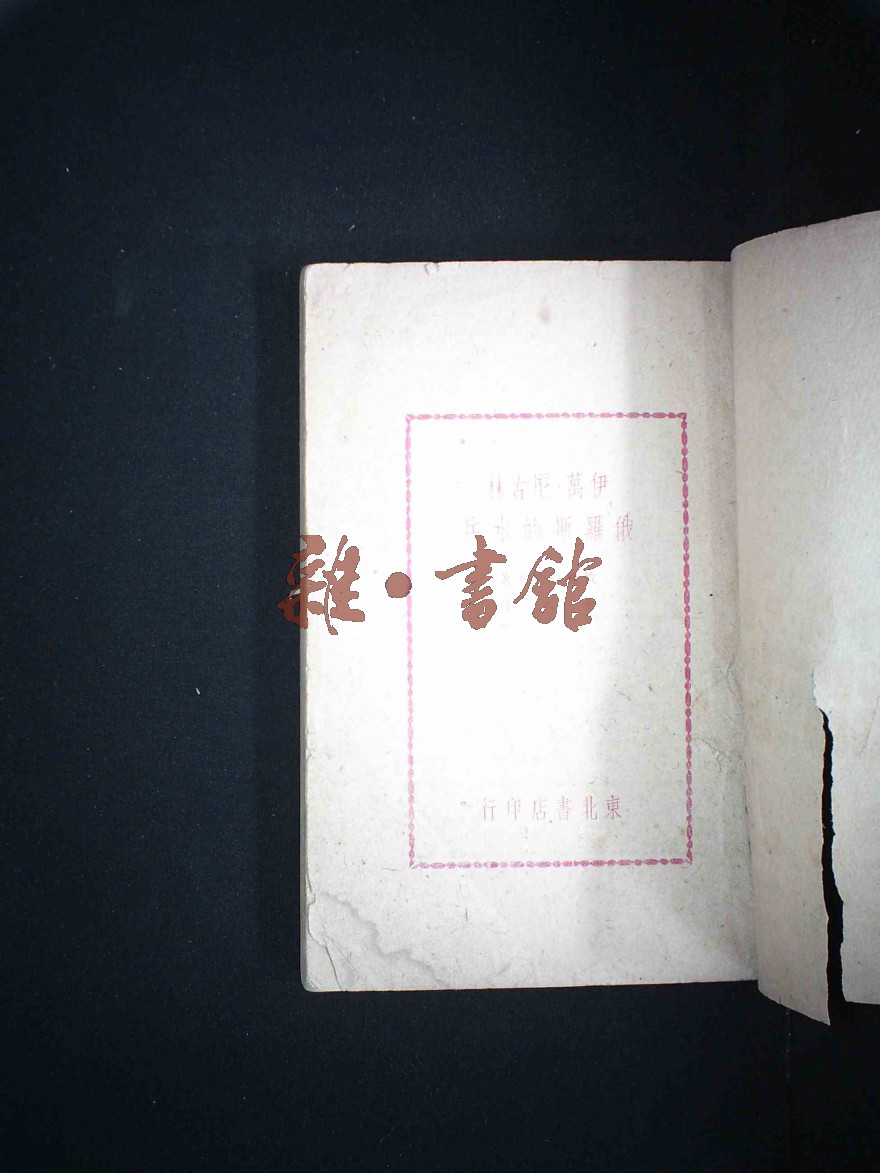 伊萬·尼古林
俄羅斯的水兵
雜·書館
東北書店印行